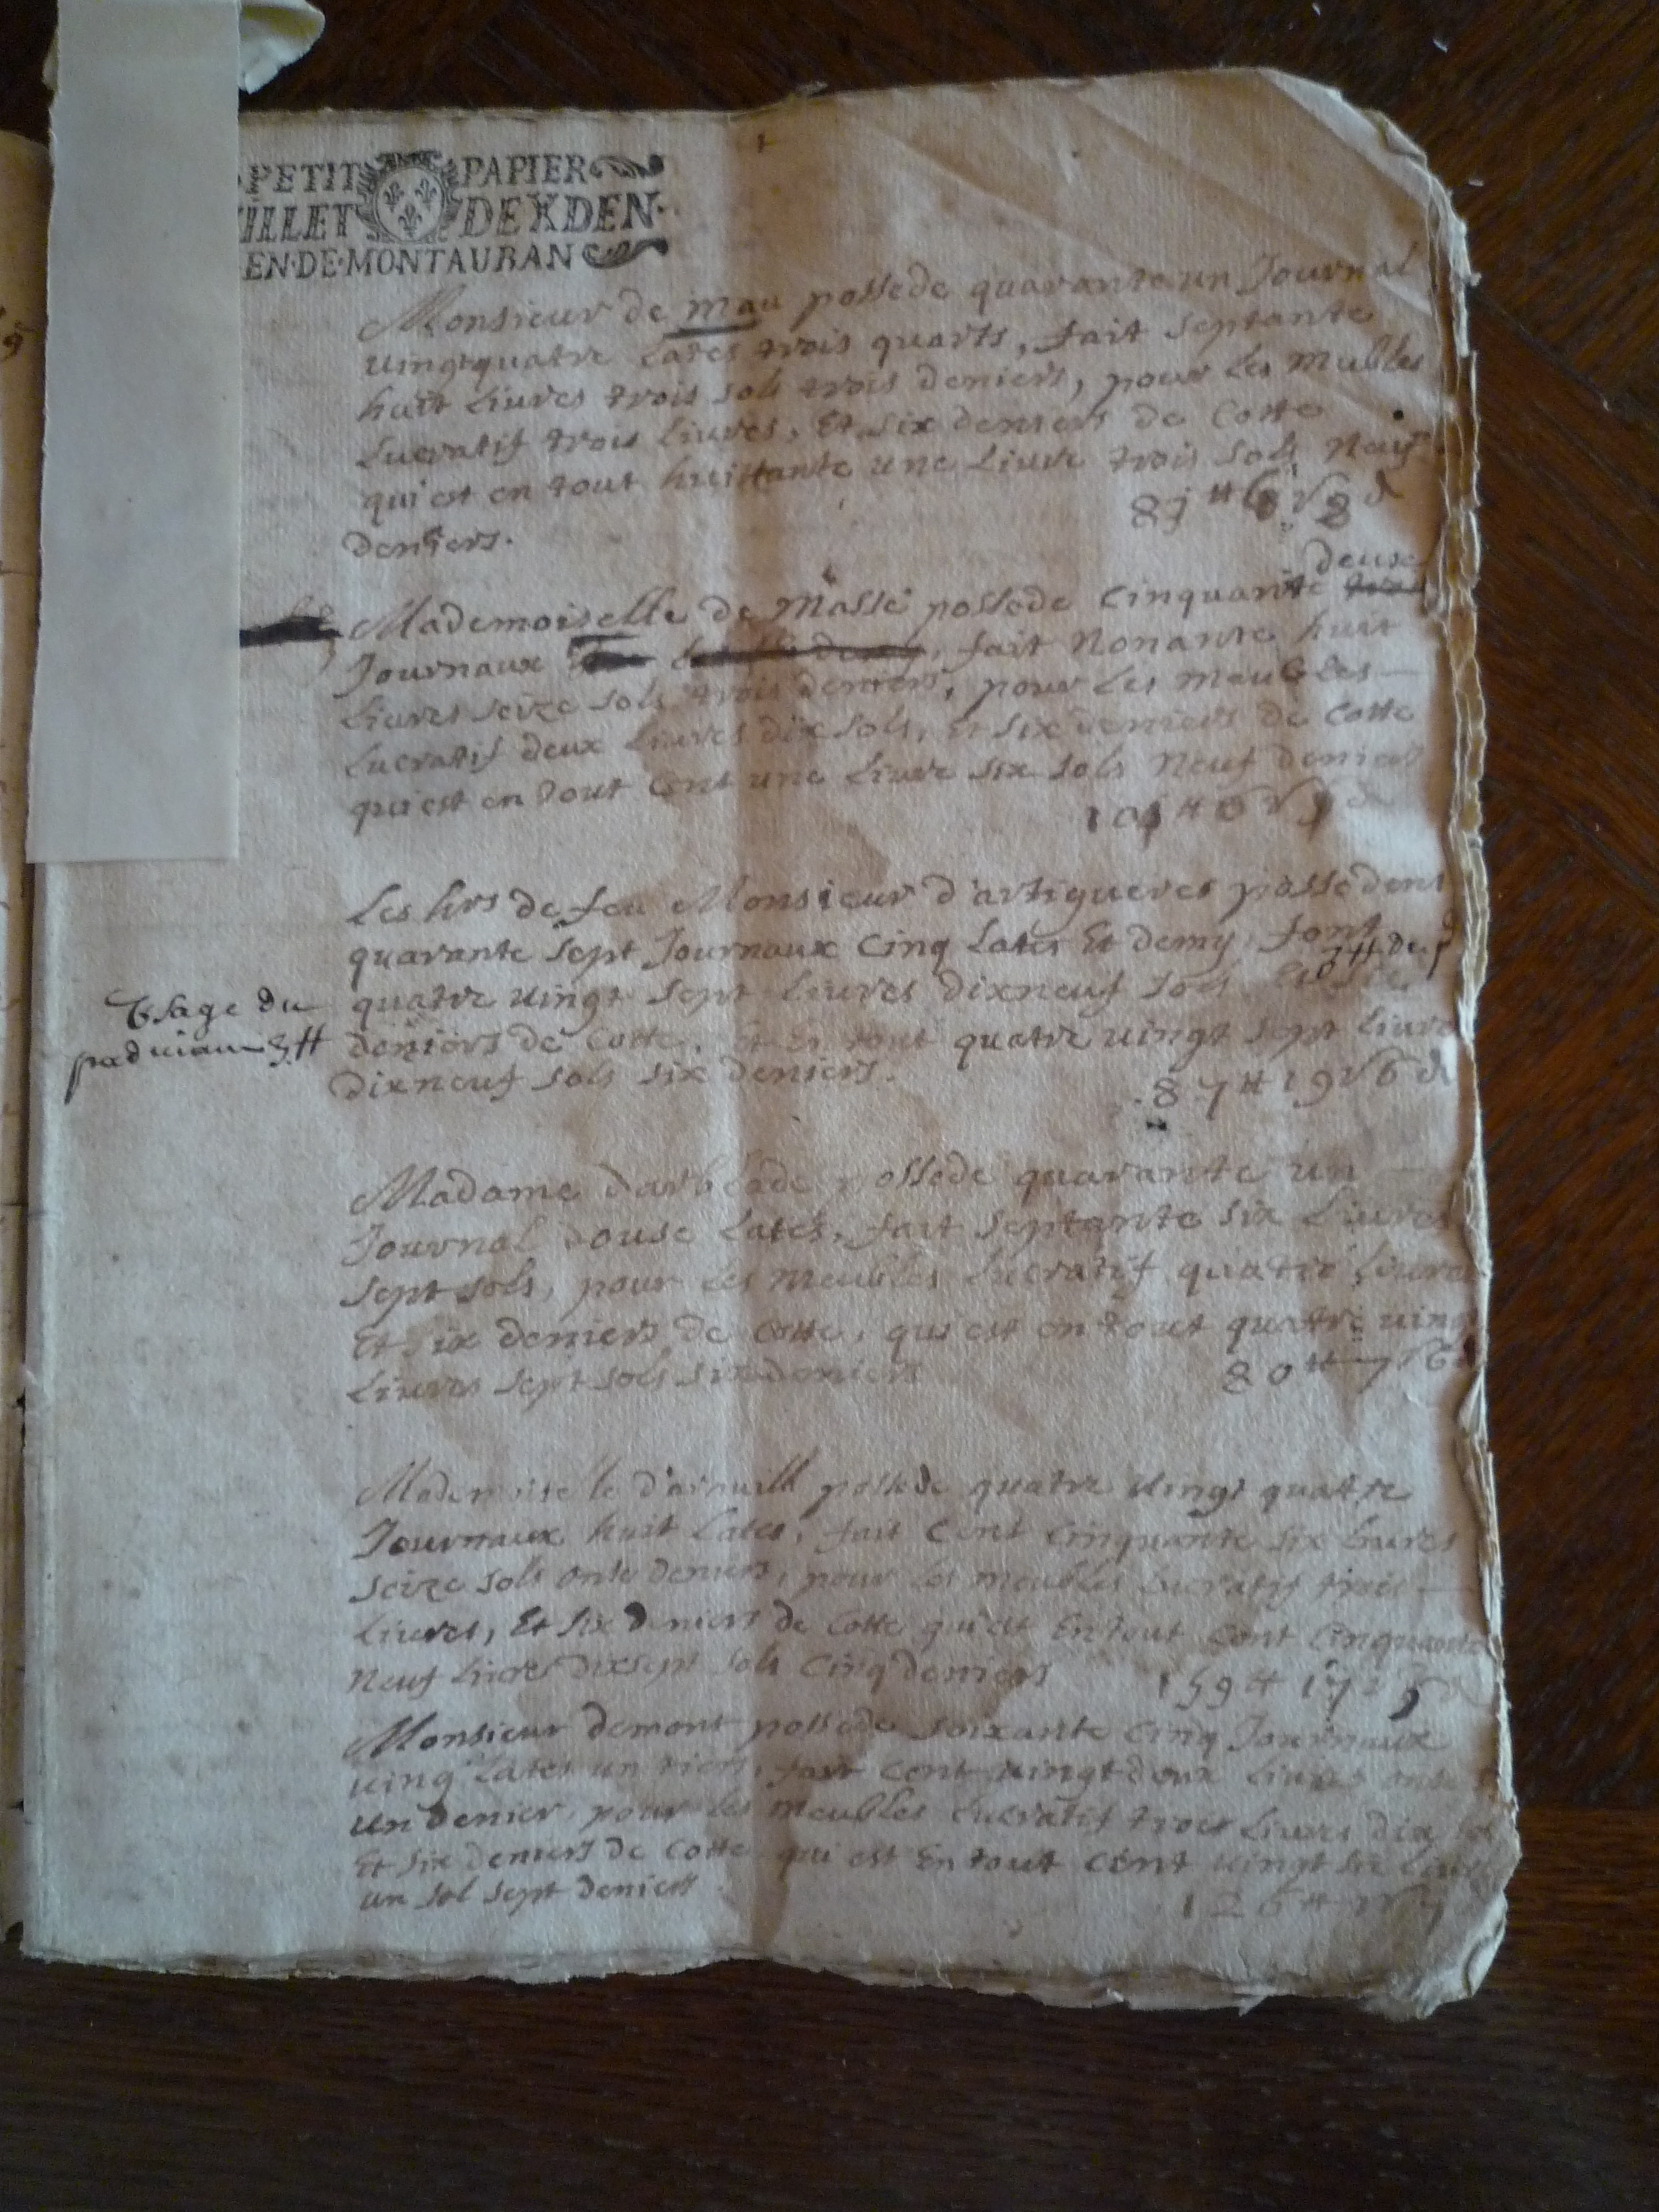 PETIT PAPIER
ILLET DEXDEN.
EN·DE·MONTAUBAN
Monsieur de mau possede quarante un Journal
vingtquatre Lates trois quarts, fait septante
huit Livres trois sols trois deniers, pour Les Mubles
Lucratif trois Livres, Et six deniers de Cotte
qui est en tout huittante une Livre trois sols Neuf
deniers.
deuse
Mademoiselle de Massé possede Cinquante
Journaux fait Nonante huit
Livres seize sols trois deniers, pour Les meubles
Lucratif deux Livres dix sols, Et six deniers de Cotte
qui est en tout Cent une Livre six sols Neuf deniers
Les hrs de feu Monsieur d'artigueres possedent
quarante sept Journaux Cinq Lates Et demy, font
quatre vingt sept Livres dixneuf sols
deniers de Cotte, Et En tout quatre vingt sept Livres
dixneuf sols six deniers.
87 tt 19 s 6 d
Usage du
Madame darblade possede quarante un
Journal douse Lates, fait septante six Livres
sept sols, pour Les Meubles Lucratif quatre Livres
Et six deniers de Cotte, qui est en tout quatre vingt
Livres sept sols six deniers
80 tt 7 s 6 d
Mademoiselle possede quatre vingt quattre
Journaux huit Lates, fait Cent Cinquante six Livres
seize sols onse deniers, pour Les meubles Lucratif trois
Livres, Et six deniers de Cotte qui est En tout Cent Cinquante
Neuf Livres dixsept sols Cinq deniers
159 tt 17 s 5 d
Monsieur demont possede soixante Cinq Journaux
Lates un tiers, fait Cent vingt deux Livres onse
un denier, pour Les meubles Lucratif trois Livres dix
Et six deniers de Cotte qui est En tout Cent vingt six Livres
un sol sept deniers